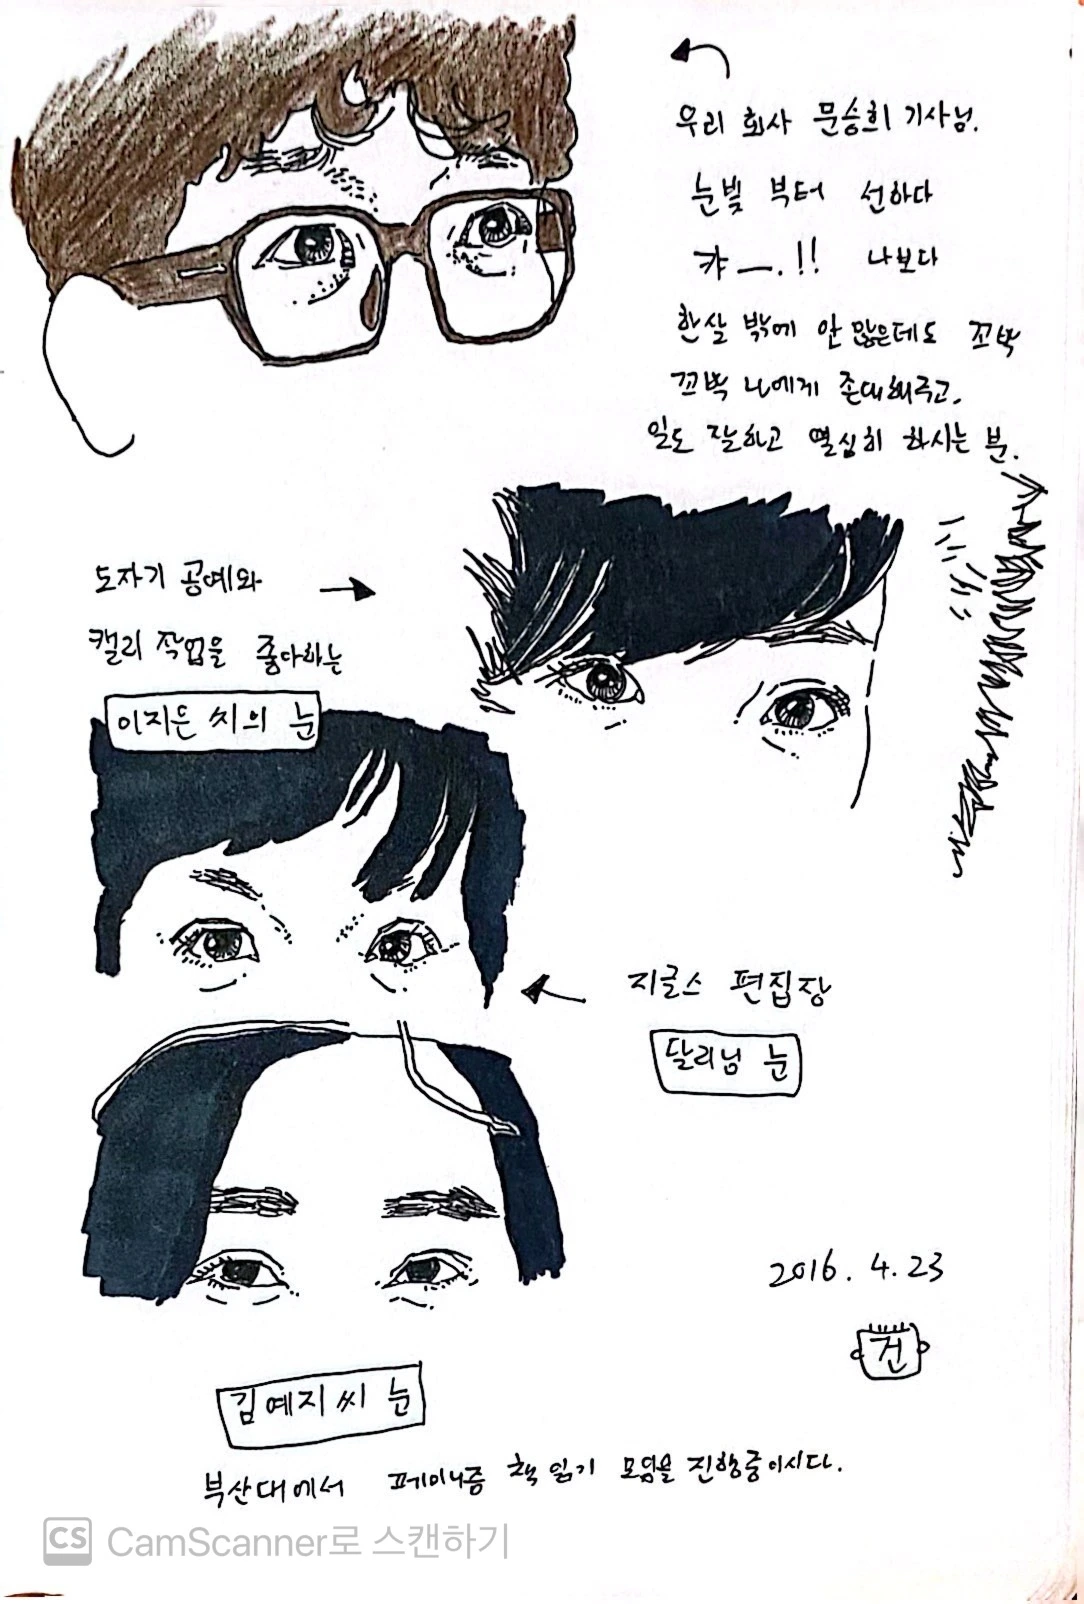 우리 회사 문승희 기사님.
눈빛 부터 선하다
캬 —. !! 나보다
한살 밖에 안 많은데도 꼬박
꼬박 나에게 존대해주고,
일도 잘하고 열심히 하시는 분.
도자기 공예와
캘리 작업을 좋아하는
이지든 씨의 눈
지글스 편집장
달리님 눈
2016. 4. 23
건
김예지씨 눈
부산대에서 페미니즘 책 읽기 모임을 진행중이시다.
CS CamScanner로 스캔하기